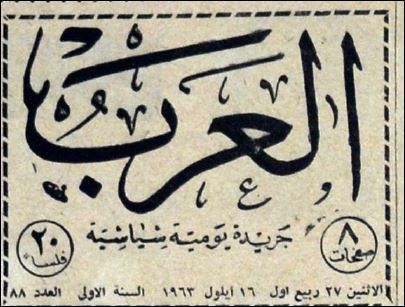 العرب
٨ صفحات
جريدة يومية سياسية
٢٠ فلسا
الاثنين ٢٧ ربيع اول ١٦ ايلول ١٩٦٣ السنة الاولى العدد ٨٨